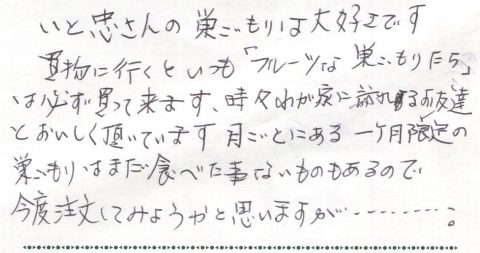 いと忠さんの巣ごもりは大好きです
買物に行くといつも「フルーツな巣ごもりたち」
は必ず買って来ます、時々わが家に訪れるお友達
とおいしく頂いています 月ごとにある一ヶ月限定の
巣ごもりはまだ食べた事ないものもあるので
今度注文してみようかと思いますが---------。